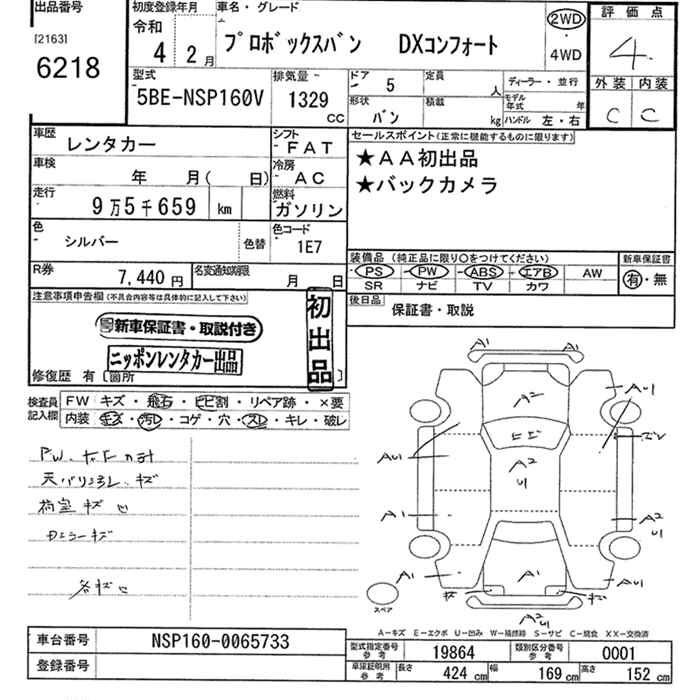 出品番号
[2163]
6218
初度登録年月
令和
4 2月
車名・グレード
プロボックスバン DXコンフォート
2WD
4WD
評価点
4
外装 内装
C C
型式
5BE-NSP160V
排気量
1329
CC
ドア 5
形状 バン
定員 人
積載 kg
ディーラー・並行
モデル年式 年
ハンドル 左・右
車歴 レンタカー
シフト FAT
車検 年 月( 日)
冷房 AC
走行 9万5千659 km
燃料 ガソリン
色 シルバー
色替
色コード 1E7
R券 7,440円
名変通知期限 月 日
セールスポイント(正常に機能するものに限ります)
★AA初出品
★バックカメラ
装備品 (純正品に限り○をつけてください)
PS PW ABS エアB AW
SR ナビ TV カワ
新車保証書
有・無
後日品 保証書・取説
注意事項申告欄(不具合内容等は具体的に記入して下さい)
新車保証書・取説付き
ニッポンレンタカー出品
初出品
修復歴 有 [箇所 ]
検査員記入欄
FW キズ・飛石・ヒビ割・リペア跡・×要
内装 キズ・汚レ・コゲ・穴・スレ・キレ・破レ
天バリヨゴレ、キズ
荷室 キズ 凹
カエラーキズ
各キズ凹
A1 A1
A2
AU1
ヒビ
A2
U1
AU1
A1
A2
U1
A1
A1
AU1
キズ
A2
U1
スペア
A-キズ E-エクボ U-凹み W-補修跡 S-サビ C-腐食 XX-交換済
車台番号 NSP160-0065733
登録番号
型式指定番号 参考 19864
類別区分番号 参考 0001
車庫証明用 参考
長さ 424 cm
幅 169 cm
高さ 152 cm